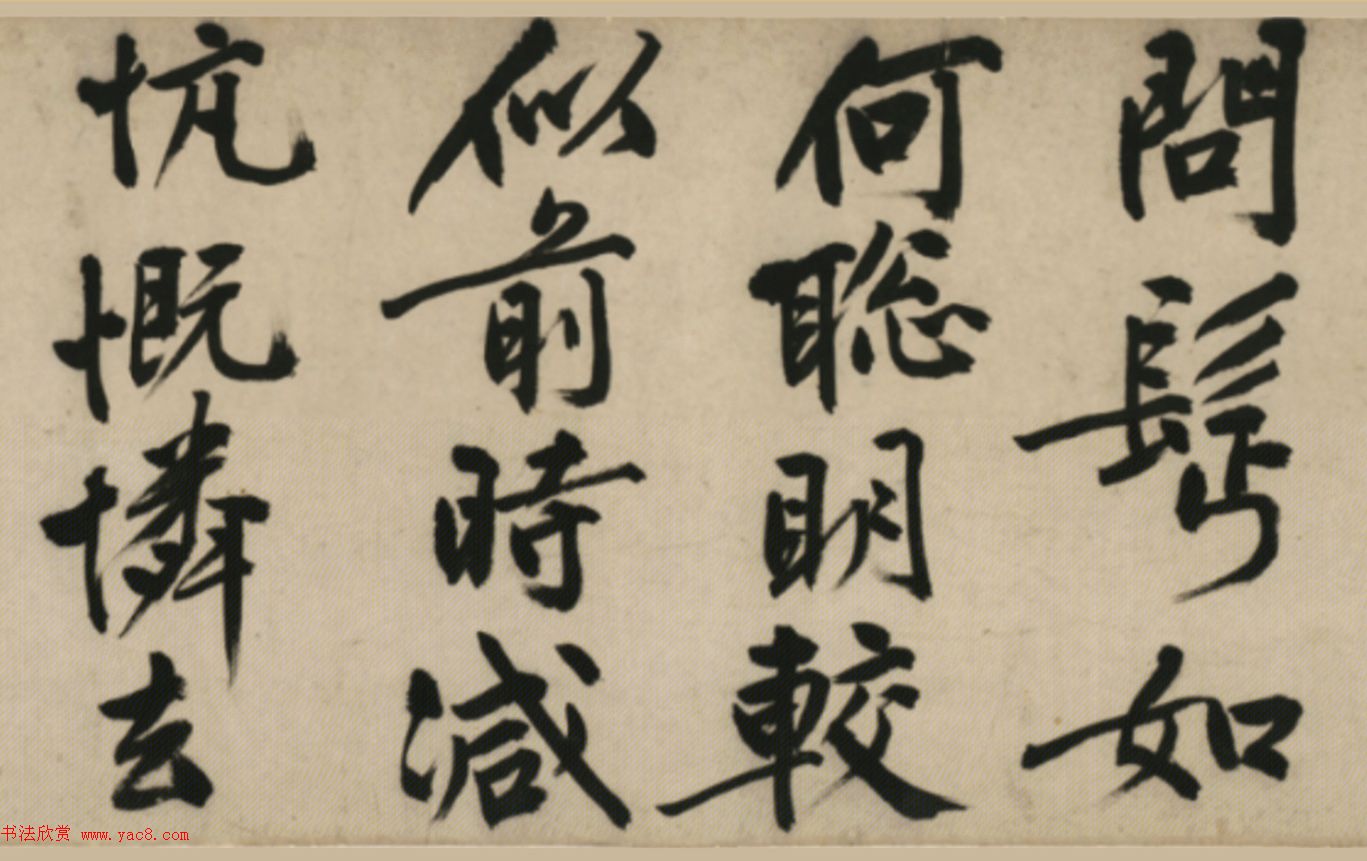 問髩如
何聰明較
似前時減
忼慨憐去
书法欣赏 www.yac8.com